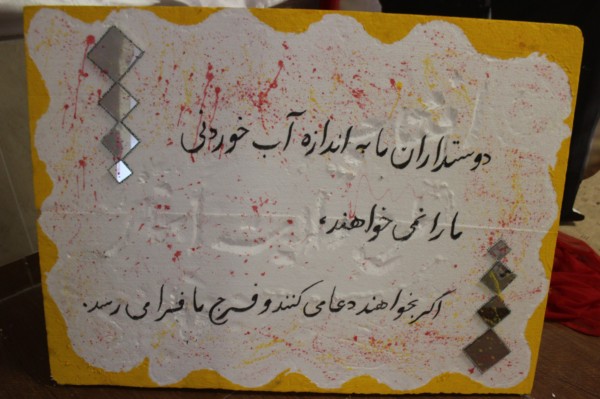 دوستداران ما به اندازه آب خوردنی
ما را نمی خواهند،
اگر بخواهند دعا می کنند و فرج ما فرا می رسد.